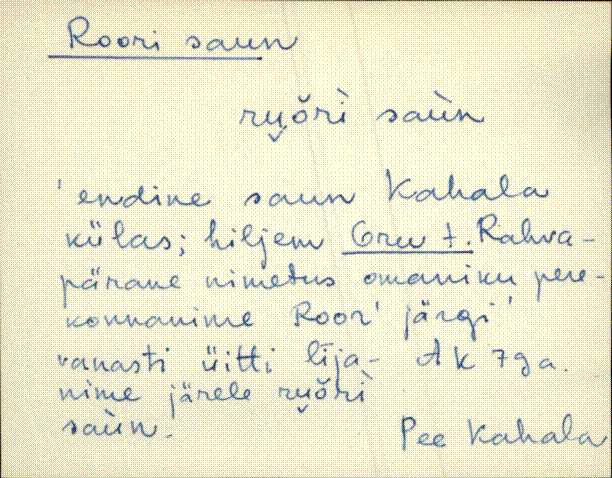 Roori saun
ru̯ŏrì saùn
'endine saun Kahala
külas; hiljem Oru t. Rahva-
pärane nimetus omaniku pere-
konnanime Roor' järgi'
vanasti üitti līja- AK 79a.
nime järele ru̯ŏrì
saùn.
Pee Kahala